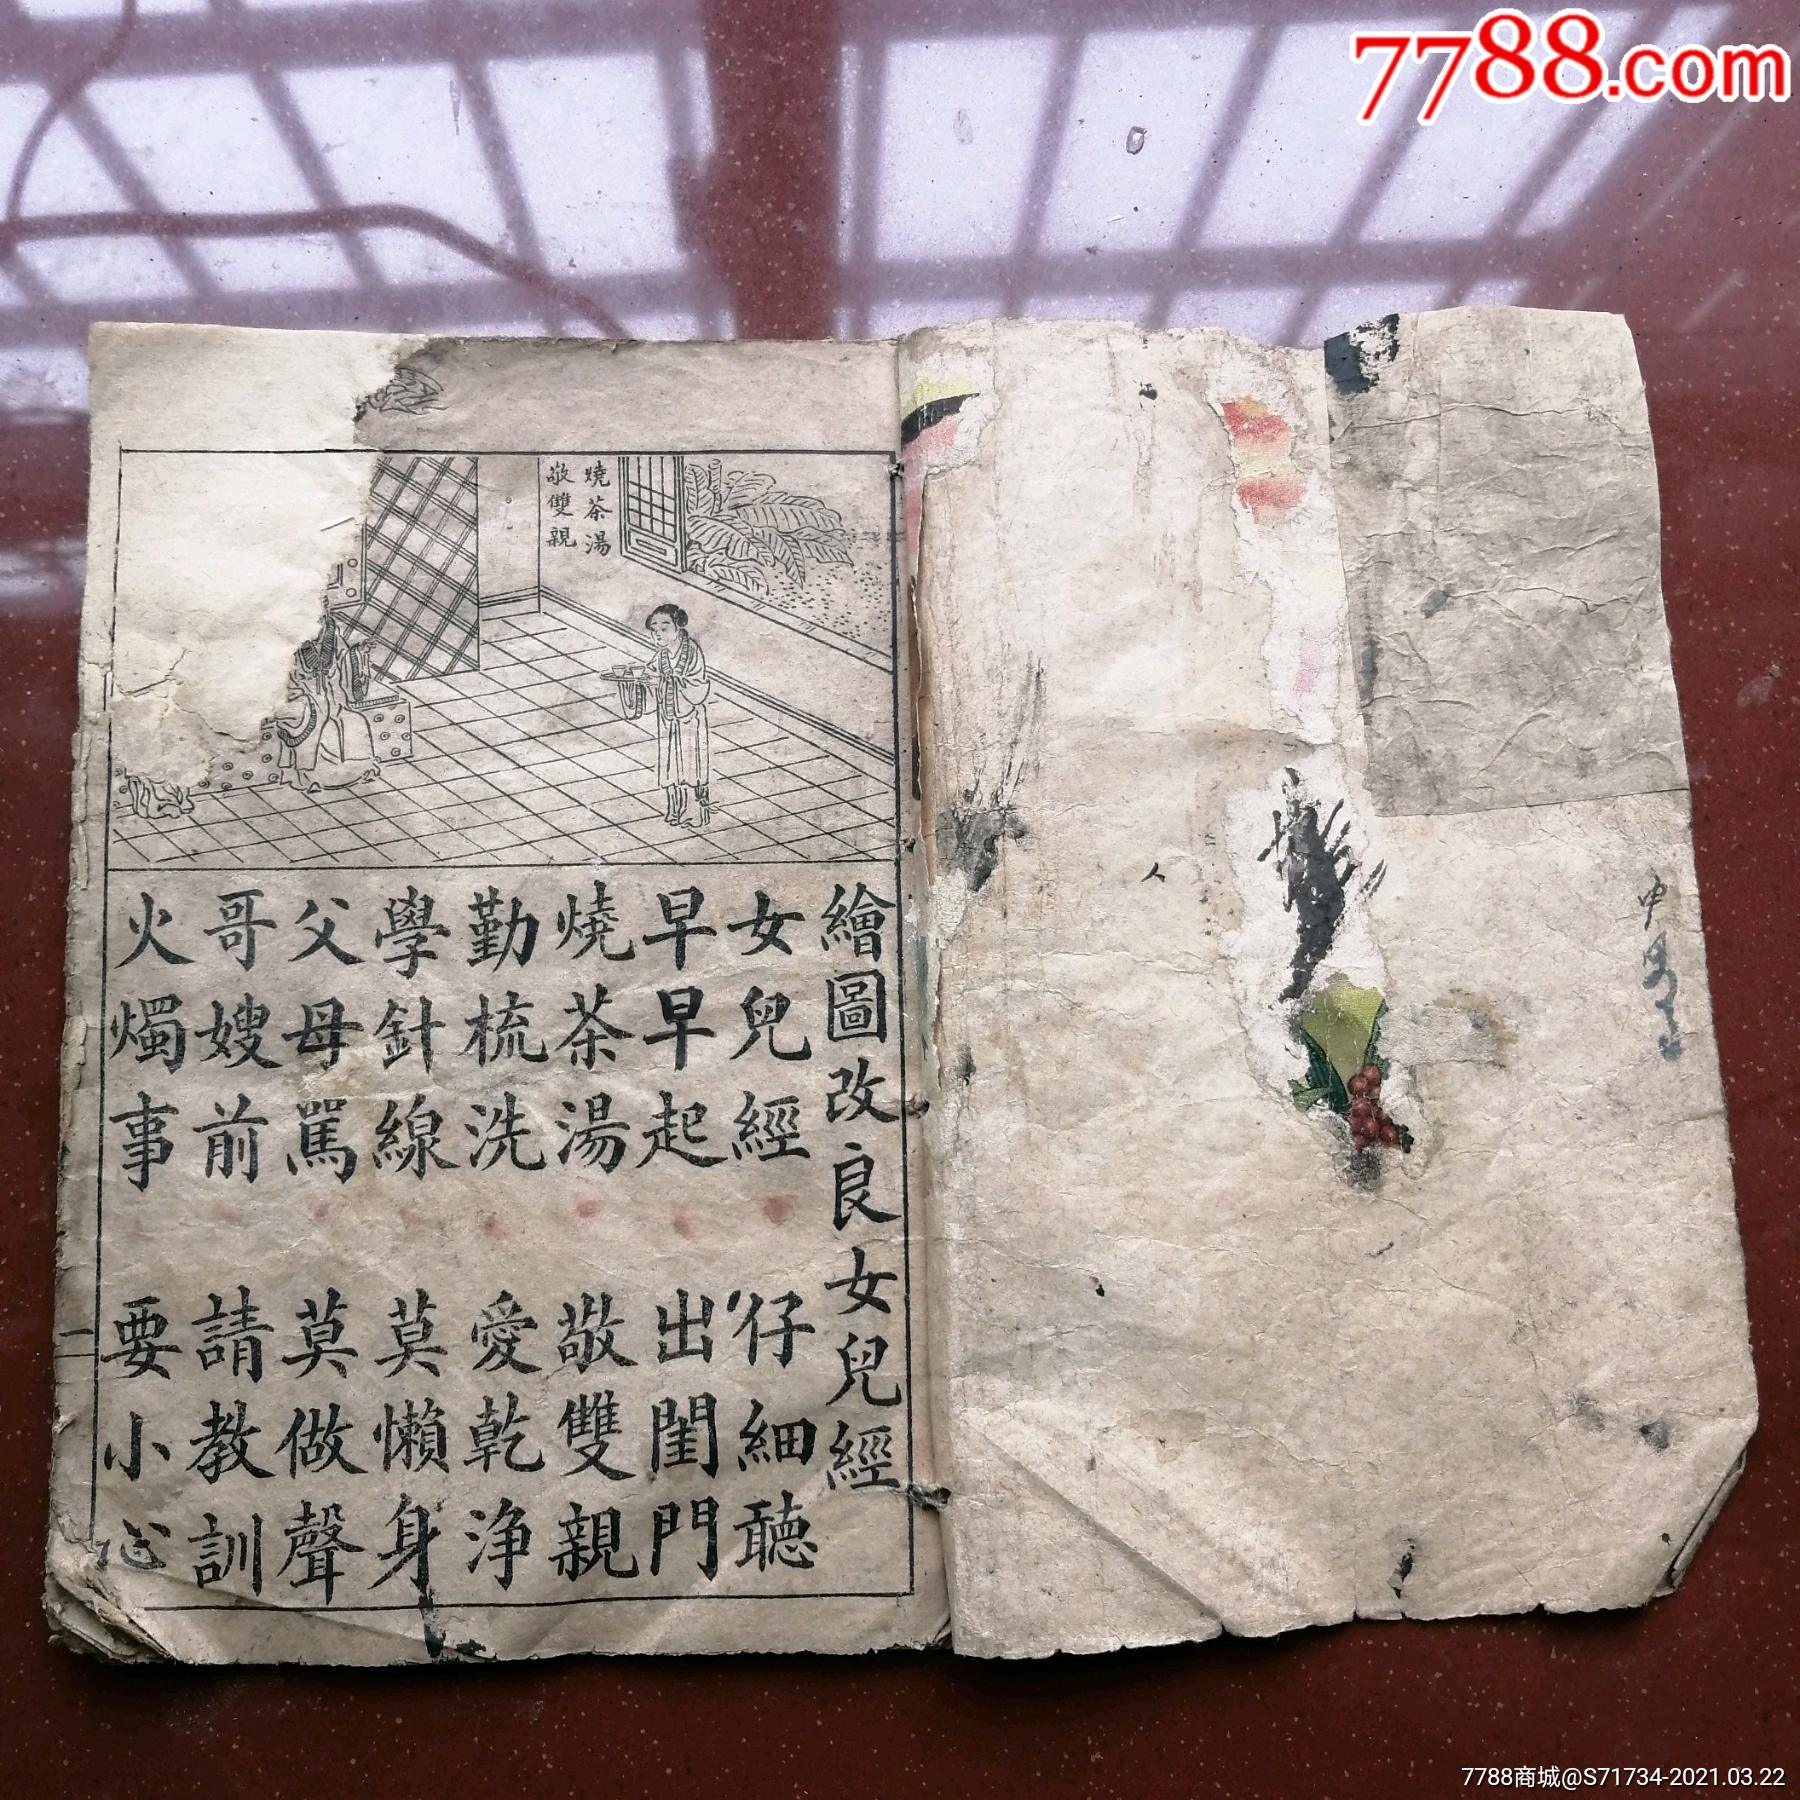 7788.com
燒茶湯
敬雙親
繪圖改良女兒經
女兒經 仔細聽
早早起 出閨門
燒茶湯 敬雙親
勤梳洗 愛乾浄
學針線 莫懶身
父母罵 莫做聲
哥嫂前 請教訓
火燭事 要小心
二
7788商城@S71734-2021.03.22